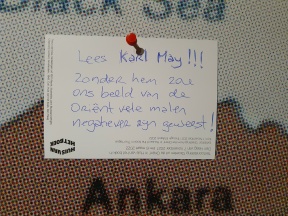 Black Sea
Lees Karl May!!!
Zonder hem zou
ons beeld van de
Oriënt vele malen
negatiever zijn geweest!
HUIS VAN
HET BOEK
Ankara